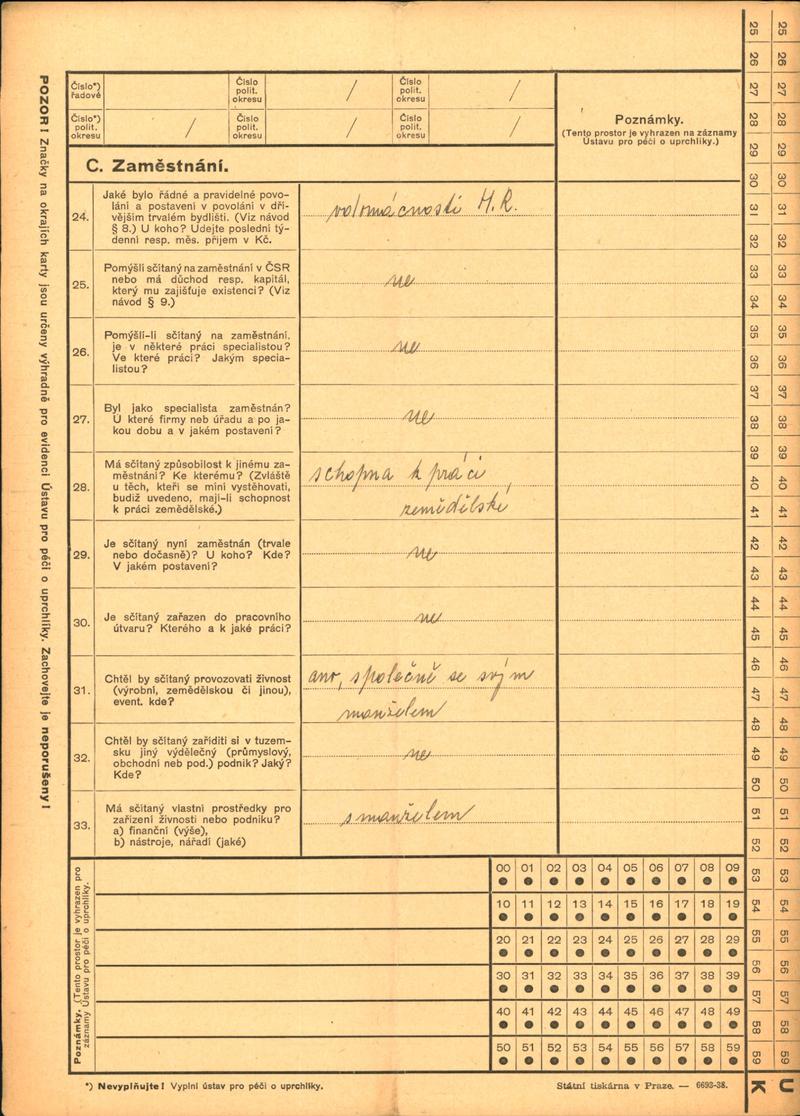 Číslo*) řadové
Číslo polit. okresu
/
Číslo polit. okresu
/
Číslo*) polit. okresu
/
Číslo polit. okresu
/
Číslo polit. okresu
/
Poznámky.
(Tento prostor je vyhrazen na záznamy
Ústavu pro péči o uprchlíky.)
C. Zaměstnání.
24.
Jaké bylo řádné a pravidelné povo-
lání a postavení v povolání v dří-
vějším trvalém bydlišti. (Viz návod
§ 8.) U koho? Udejte poslední tý-
denní resp. měs. příjem v Kč.
H. R.
25.
Pomýšlí sčítaný na zaměstnání v ČSR
nebo má důchod resp. kapitál,
který mu zajišťuje existenci? (Viz
návod § 9.)
ne
26.
Pomýšlí-li sčítaný na zaměstnání,
je v některé práci specialistou?
Ve které práci? Jakým specia-
listou?
ne
27.
Byl jako specialista zaměstnán?
U které firmy neb úřadu a po ja-
kou dobu a v jakém postavení?
ne
28.
Má sčítaný způsobilost k jinému za-
městnání? Ke kterému? (Zvláště
u těch, kteří se míní vystěhovati,
budiž uvedeno, mají-li schopnost
k práci zemědělské.)
schopna k práci
zemědělské
29.
Je sčítaný nyní zaměstnán (trvale
nebo dočasně)? U koho? Kde?
V jakém postavení?
ne
30.
Je sčítaný zařazen do pracovního
útvaru? Kterého a k jaké práci?
ne
31.
Chtěl by sčítaný provozovati živnost
(výrobní, zemědělskou či jinou),
event. kde?
ano, společně se svým
manželem
32.
Chtěl by sčítaný zaříditi si v tuzem-
sku jiný výdělečný (průmyslový,
obchodní neb pod.) podnik? Jaký?
Kde?
ne
33.
Má sčítaný vlastní prostředky pro
zařízení živnosti nebo podniku?
a) finanční (výše),
b) nástroje, nářadí (jaké)
s manželem
Poznámky. (Tento prostor je vyhrazen pro
záznamy Ústavu pro péči o uprchlíky.)
00 01 02 03 04 05 06 07 08 09
10 11 12 13 14 15 16 17 18 19
20 21 22 23 24 25 26 27 28 29
30 31 32 33 34 35 36 37 38 39
40 41 42 43 44 45 46 47 48 49
50 51 52 53 54 55 56 57 58 59
*) Nevyplňujte! Vyplní ústav pro péči o uprchlíky.
Státní tiskárna v Praze. — 6693-38.
POZOR! Značky na okrajích karty jsou určeny výhradně pro evidenci Ústavu pro péči o uprchlíky. Zachovejte je neporušeny!
25 26 27 28 29 30 31 32 33 34 35 36 37 38 39 40 41 42 43 44 45 46 47 48 49 50 51 52 53 54 55 56 57 58 59 K
25 26 27 28 29 30 31 32 33 34 35 36 37 38 39 40 41 42 43 44 45 46 47 48 49 50 51 52 53 54 55 56 57 58 59 U